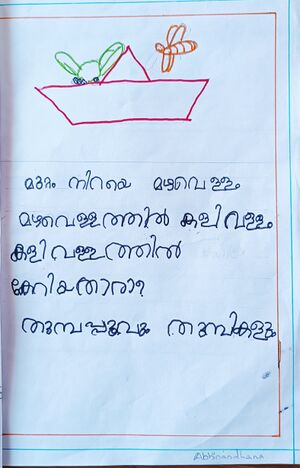 മുറ്റം നിറയെ മഴവെള്ളം
മഴവെള്ളത്തിൽ കളിവള്ളം
കളിവള്ളത്തിൽ
കേറിയതാരാ?
തുമ്പപ്പൂവും തുമ്പികളും
Abhinandhana